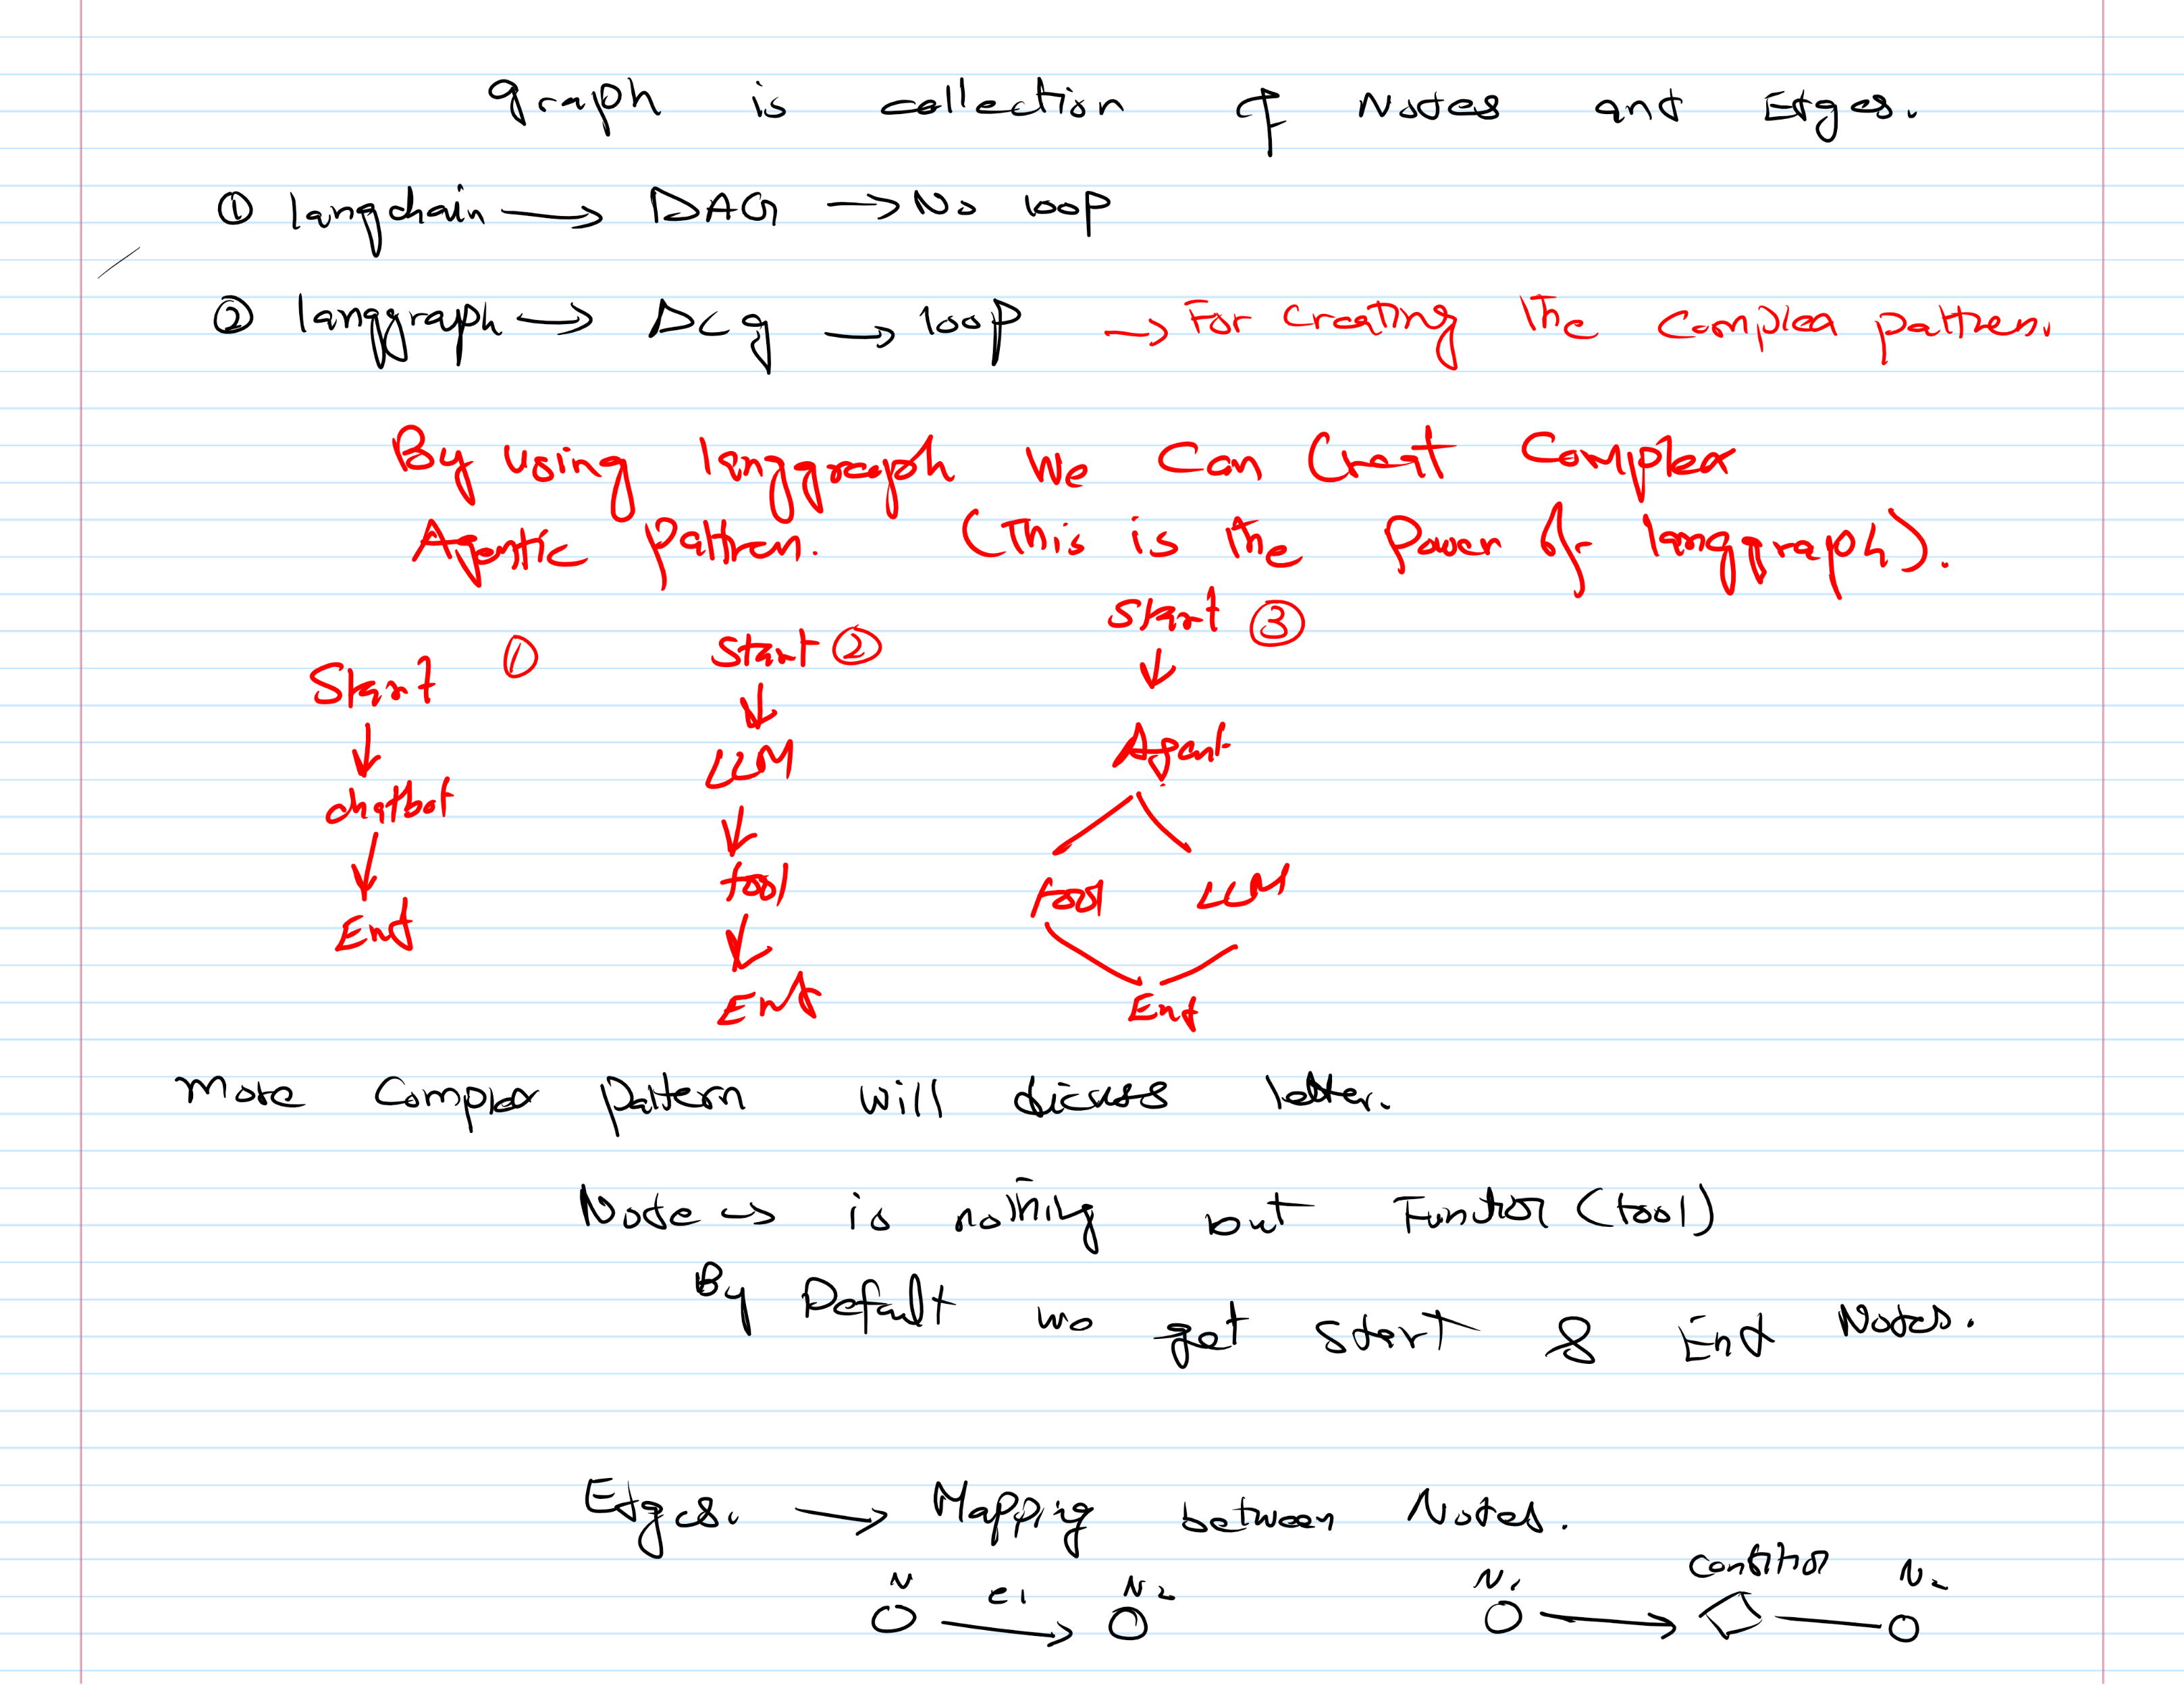 Graph is collection of Nodes and Edges.
① langchain → DAG → No loop
② langgraph → DCG → loop → For creating the complex pattern.
By using langgraph we can Creat Complex
Agentic Pattern. (This is the Power of langgraph).
Start ①
↓
chatbot
↓
End
Start ②
↓
LLM
↓
tool
↓
End
Start ③
↓
Agent
tool LLM
End
More Complex pattern will discuss later.
Node → is nothing but Function (tool)
By Default we get Start & End Nodes.
Edges. → Mapping between Nodes.
N e1 N2
N1 condition N2